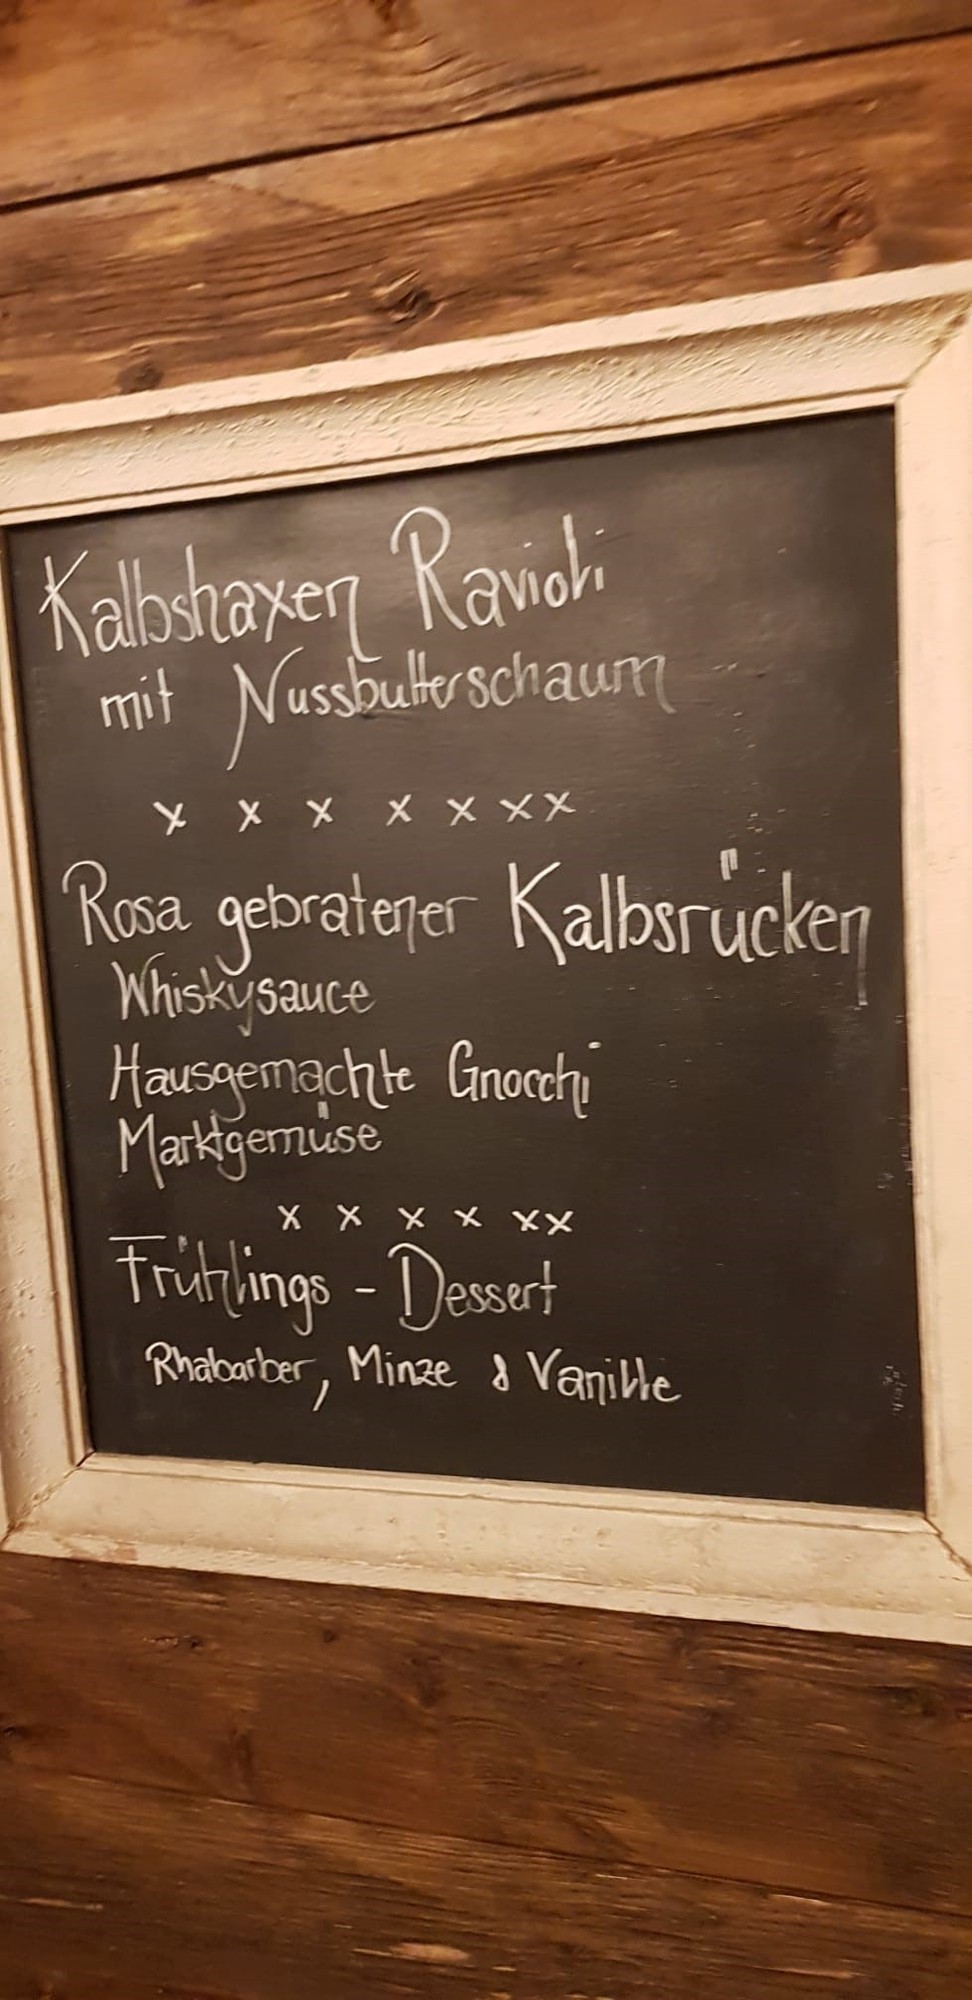 Kalbshaxen Ravioli
mit Nussbutterschaum
x x x x x x x
Rosa gebratener Kalbsrücken
Whiskysauce
Hausgemachte Gnocchi
Marktgemüse
x x x x x x
Frühlings - Dessert
Rhabarber, Minze & Vanille